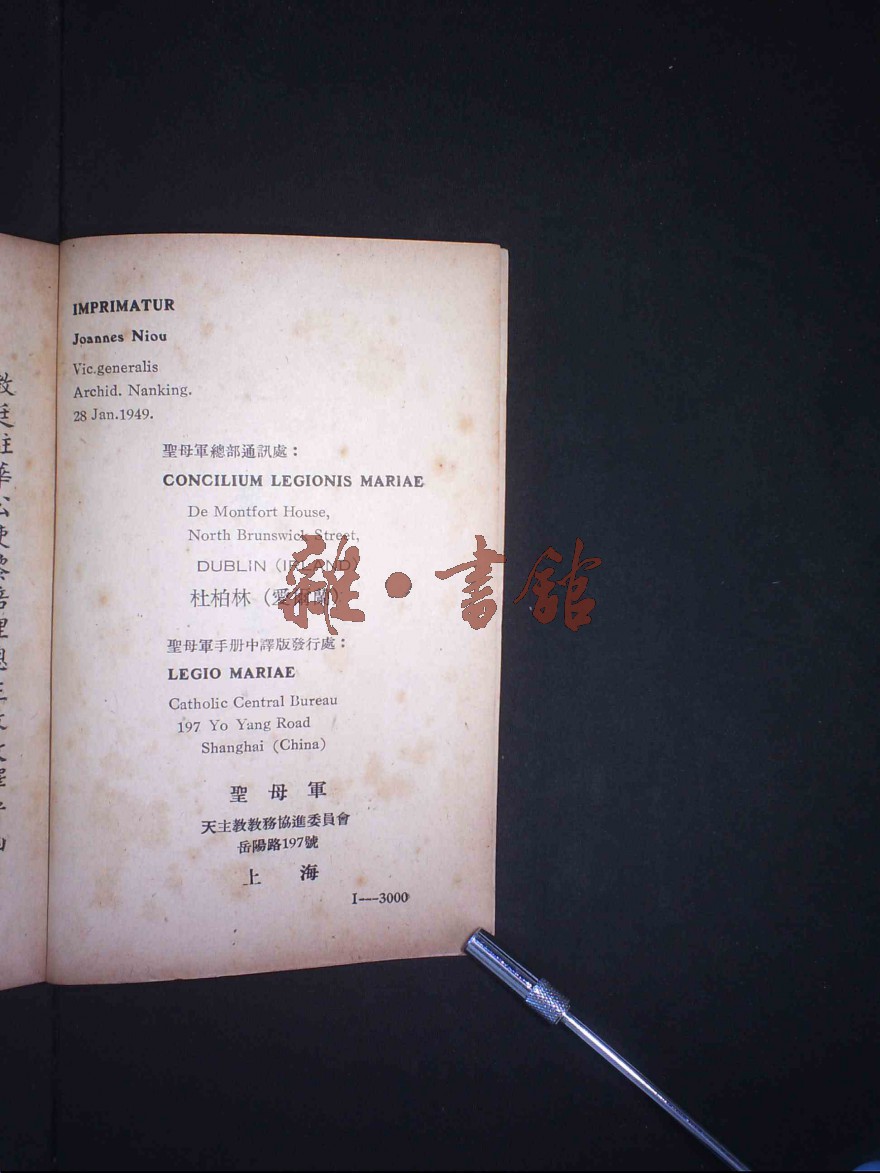 IMPRIMATUR
Joannes Niou
Vic.generalis
Archid. Nanking.
28 Jan.1949.
聖母軍總部通訊處：
CONCILIUM LEGIONIS MARIAE
De Montfort House,
North Brunswick Street,
DUBLIN (IRELAND)
杜柏林（愛爾蘭）
雜·書館
聖母軍手册中譯版發行處：
LEGIO MARIAE
Catholic Central Bureau
197 Yo Yang Road
Shanghai (China)
聖母軍
天主教教務協進委員會
岳陽路197號
上海
I---3000